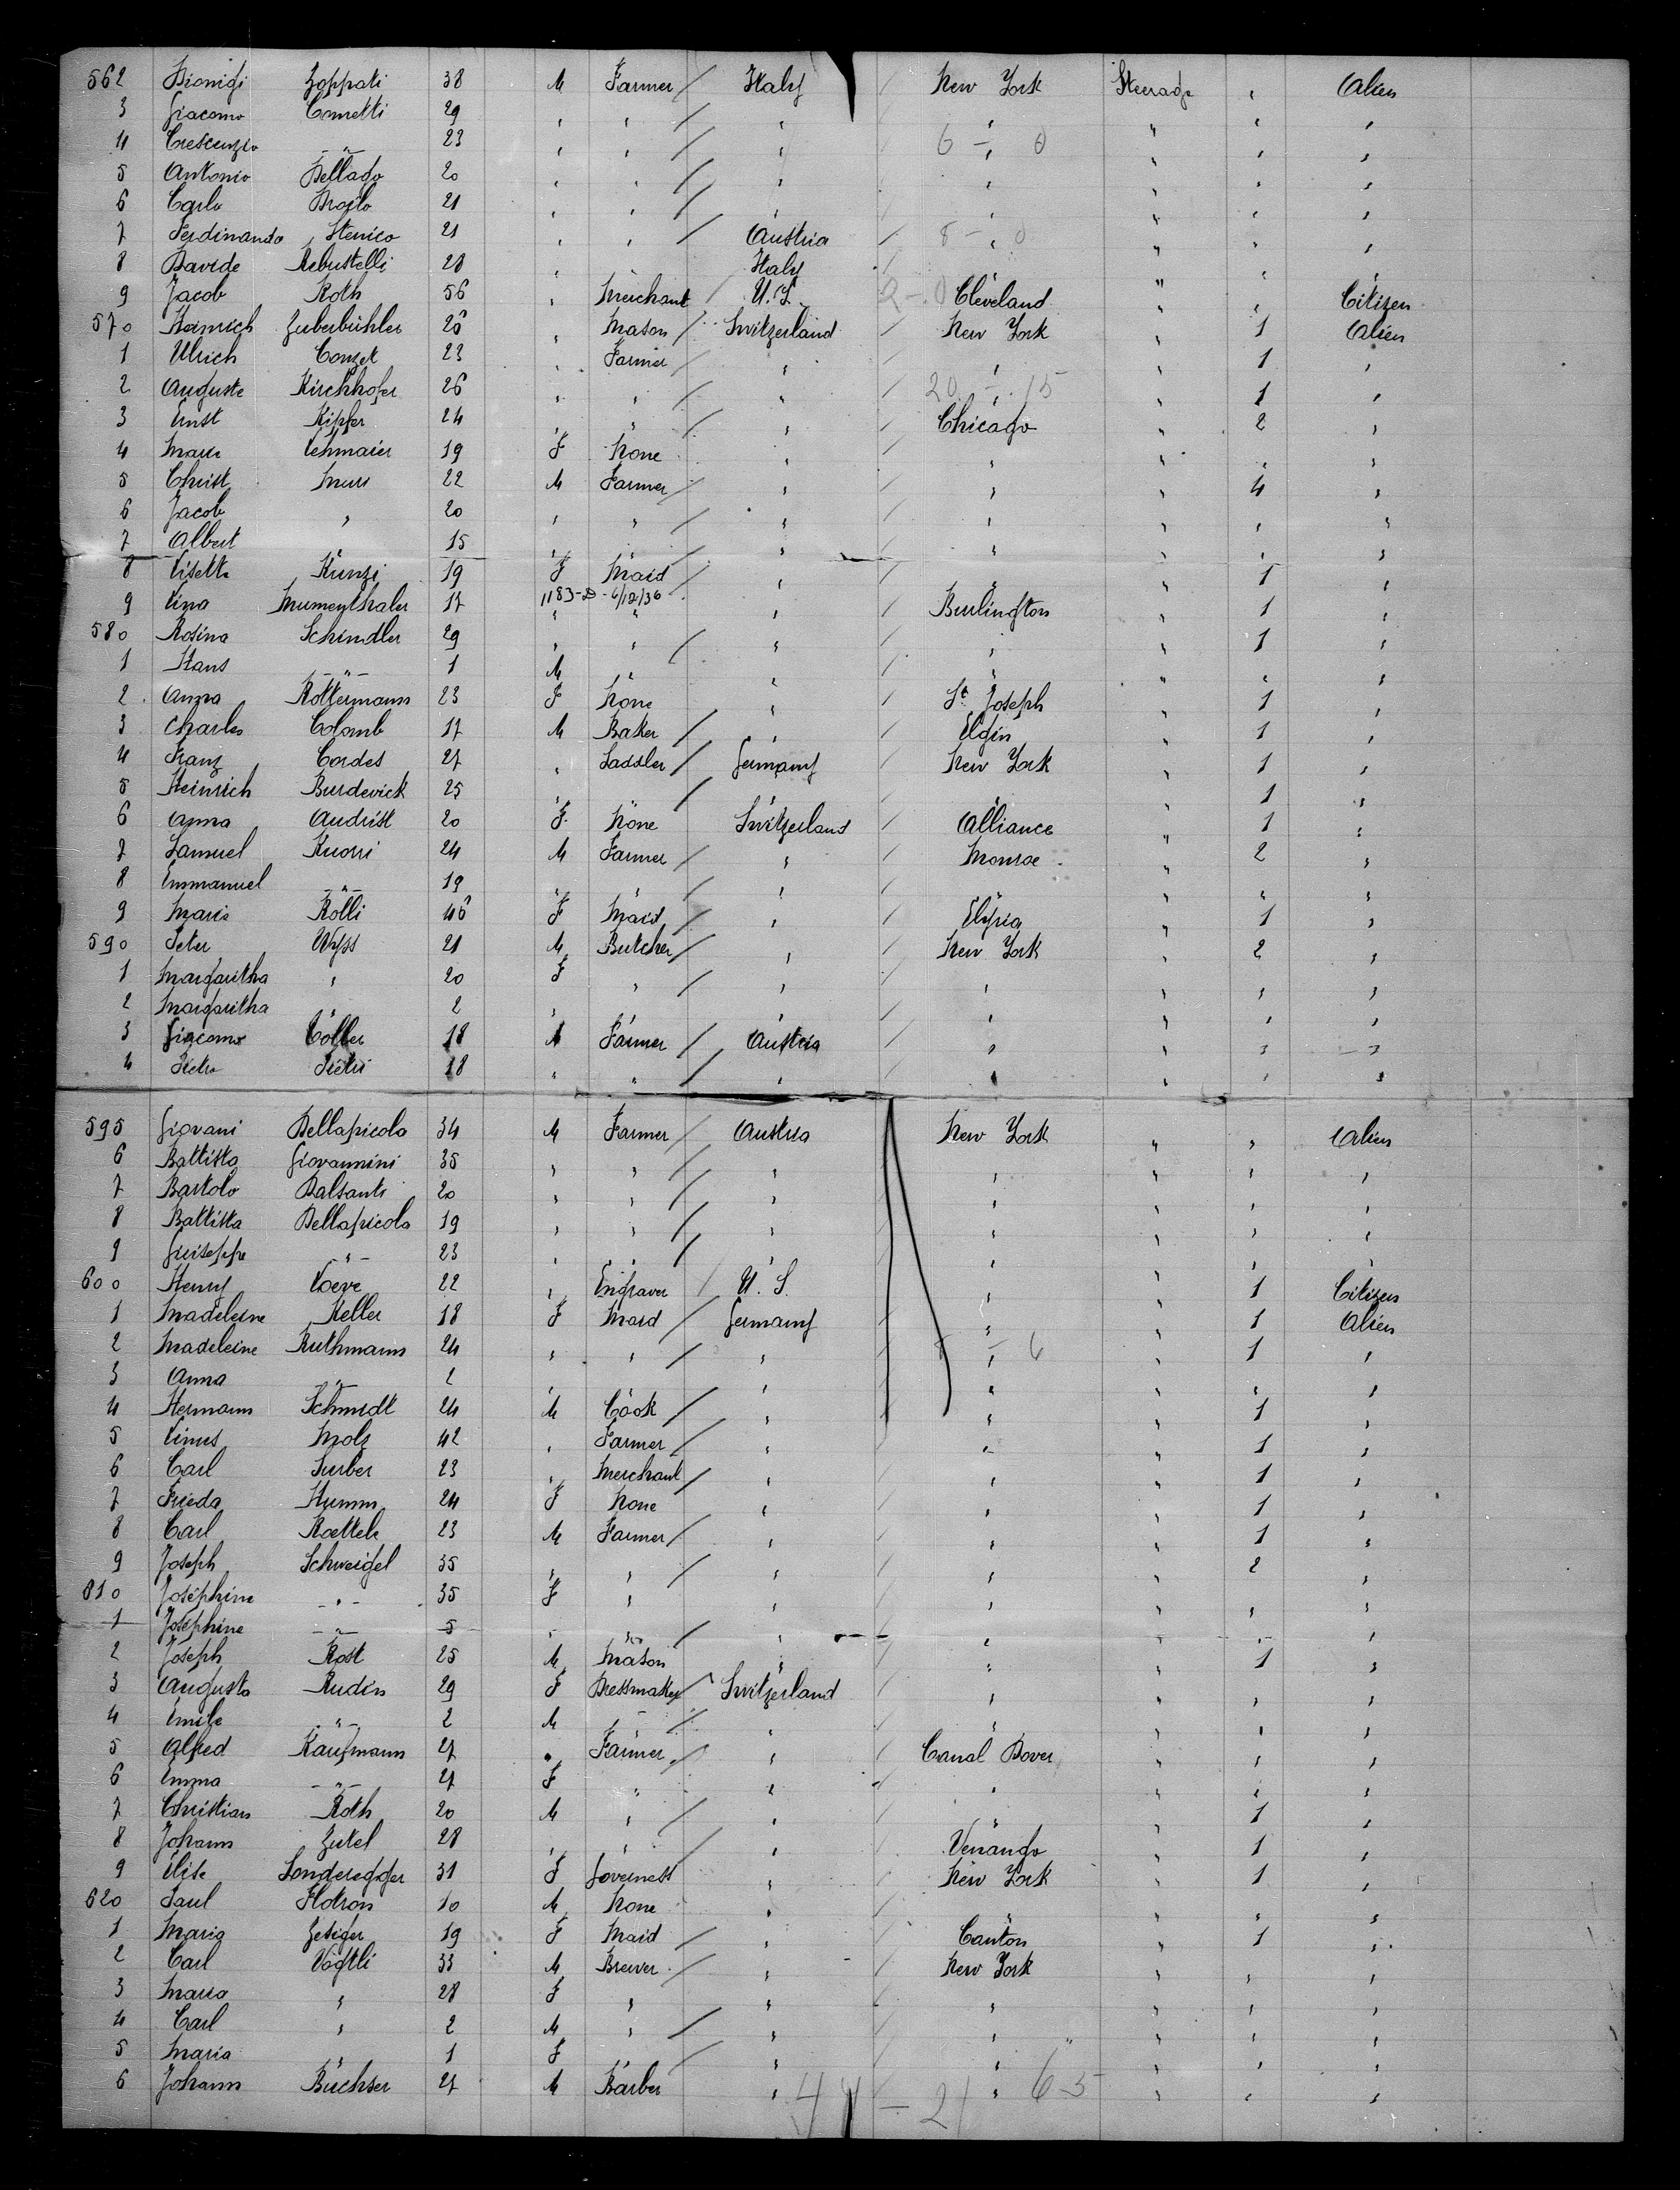 562 Dionigi Zoppati 38 M Farmer / Italy / New York Steerage " Alien
3 Giacomo Cometti 29 " " / " / " " " "
4 Crescenzio -"- 23 " " / " / 6 - " 0 " " "
5 Antonio Dellago 20 " " / " / " " " "
6 Carlo 21 " " / " / " " " "
7 Ferdinando Stenico 21 " " / Austria / 8 - " 0 " " "
8 Davide Rebustelli 28 " Italy / " " " "
9 Jacob Roth 56 " Merchant / U.S. 2 - 0 Cleveland " " Citizen
570 Heinrich Zuberbühler 26 " Mason / Switzerland / New York " 1 Alien
1 Ulrich Conzet 23 " Farmer " / " " 1 "
2 Auguste Kirchhofer 26 " " / " / 20 - " 15 " 1 "
3 Ernst Kipfer 24 " " / " / Chicago " 2 "
4 Marie Lehmaier 19 F None " / " " " "
5 Christ 22 M Farmer / " / " " 4 "
6 Jacob " 20 " " / " / " " " "
7 Albert " 15 " " / " / " " " "
8 Lisette Künzi 19 F Maid / " / " " 1 "
1183-D-6/12/36
9 Lina Mumenthaler 17 " " " / Burlington " 1 "
580 Rosina Schindler 29 " " / " / " " 1 "
1 Hans -"- 1 M " / " " " "
2 Anna Rottermann 23 F None " / St Joseph " 1 "
3 Charles Colomb 17 M Baker / " / Elgin " 1 "
4 Franz Cordes 27 " Saddler / Germany / New York " 1 "
5 Heinrich Burdevick 25 " " / " / " " 1 "
6 Anna Audrist 20 F None Switzerland / Alliance " 1 "
7 Samuel Knorri 24 M Farmer / " / Monroe " 2 "
8 Emmanuel -"- 19 " " / " / " " " "
9 Marie Rolli 46 F Maid / " / Elyria " 1 "
590 Peter Wyss 21 M Butcher / " / New York " 2 "
1 Margaritha " 20 F " / " / " " " "
2 Margaritha " 2 " / " / " " " "
3 Giacomo 18 M Farmer / Austria / " " " "
4 Pietro Pietri 18 " " / " / " " " "
595 Giovani Dellapicolo 34 M Farmer / Austria / New York " " Alien
6 Battista Giovannini 35 " " / " / " " " "
7 Bartolo Balsanti 20 " " / " / " " " "
8 Battista Dellapicolo 19 " " / " / " " " "
9 Guiseppe -"- 23 " " / " / " " " "
600 Henry Loeve 22 " Engraver / U.S. " " 1 Citizen
1 Madeleine Keller 18 F Maid / Germany " " 1 Alien
2 Madeleine Ruthmann 24 " " / " - " 6 " 1 "
3 Anna -"- 2 " " " " " "
4 Hermann Schmidt 24 M Cook / " " " 1 "
5 Linus Molz 42 " Farmer / " / " " 1 "
6 Carl Surber 23 " Merchant / " / " " 1 "
7 Frieda Humm 24 F None " / " " 1 "
8 Carl Roettele 23 M Farmer / " / " " 1 "
9 Joseph Schweigel 35 " " / " / " " 2 "
810 Joséphine -"- 35 F " " / " " " "
1 Joséphine -"- 5 " " / " / " " " "
2 Joseph Rost 25 M Mason " / " " 1 "
3 Augusta Rudin 29 F Dressmaker / Switzerland / " " " "
4 Emile -"- 2 M - / " / " " " "
5 Alfred Kaufmann 27 " Farmer / " / Canal Dover " " "
6 Emma -"- 27 F " " / " " " "
7 Christian Roth 20 M " / " / " " 1 "
8 Johann Zutel 28 " " / " / Venango " 1 "
9 Elise Sonderegger 31 F Governess " / New York " 1 "
620 Paul Hotron 10 M None " / " " " "
1 Maria Zesiger 19 F Maid / " / Canton " 1 "
2 Carl Vögtli 33 M Brewer / " / New York " " "
3 Maria " 28 F " " / " " " "
4 Carl " 2 M " / " / " " " "
5 Maria " 1 F / " / " " " "
6 Johann Buchser 27 M Barber " " " " "
44 - 21 65